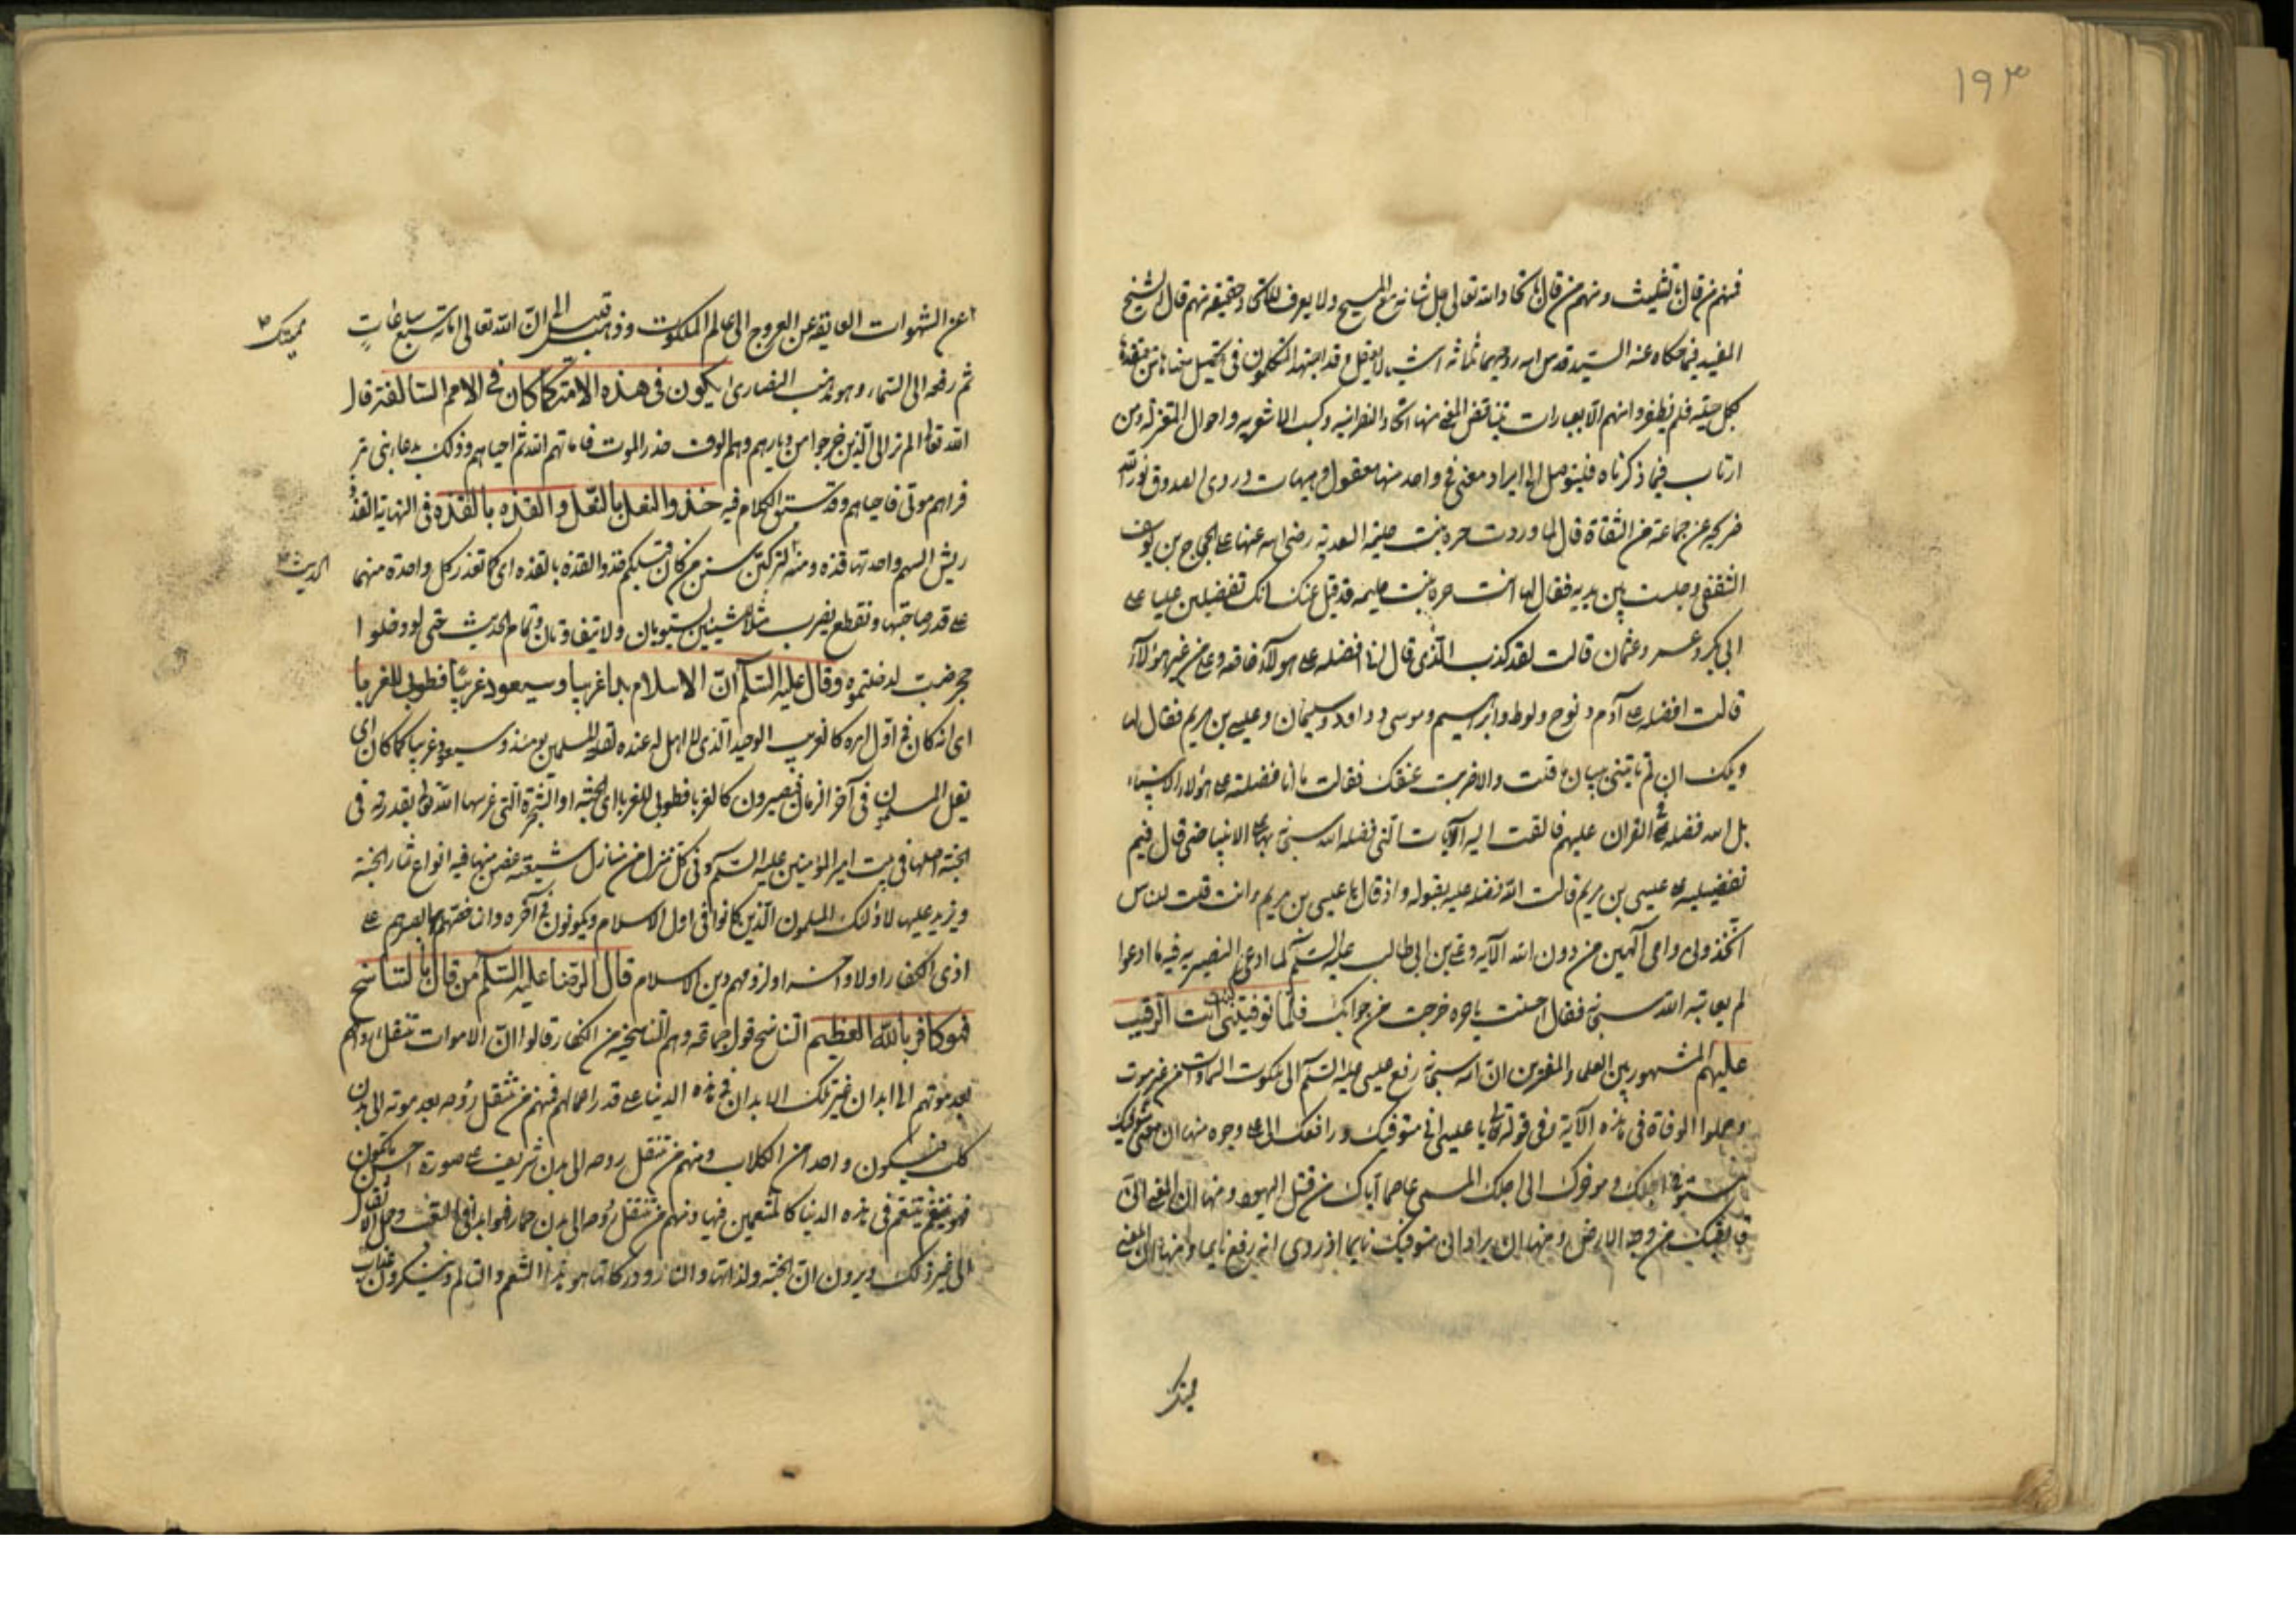 ١٩٣
فمنهم من قال بالتثليث ومنهم من قال باتحاد الله تعالى جل شانه مع المسيح ولا يعرف للاتحاد حقيقة منهم قال الشيخ
المفيد فيما حكاه عنه السيد قدس الله روحيهما ثلثة اشياء لا تعقل وقد اجتهد المتكلمون في تحصيل معناها من معتقدها
بكل حيلة فلم يظفروا منهم الا بعبارات يتناقض المعنى منها اتحاد النصرانية وكسب الاشعرية واحوال المعتزلة ومن
ارتاب فيما ذكرناه فليتوصل الى ايراد معنى في واحد منها معقول وهيهات وروى الصدوق نور الله
ضريحه عن جماعة من الثقاة قال لما وردت حره بنت حليمة السعدية رضي الله عنها على الحجاج بن يوسف
الثقفي وجلست بين يديه فقال لها انت حره بنت حليمه قد قيل عنك انك تفضلين عليا على
ابي بكر وعمر وعثمان قالت لقد كذب الذي قال اني افضله على هولاء خاصة وعلى من غير هولاء
قالت افضله على آدم ونوح ولوط وابرهيم وموسى وداود وسليمان وعيسى بن مريم فقال لها
ويلك ان لم تاتيني ببيان ما قلت والا ضربت عنقك فقالت ما انا فضلته على هولاء الانبياء
بل الله فضله في القران عليهم فالقت اليه الآيات التي فضله الله سبحانه بها على الانبيا حتى قال فبم
تفضيليه على عيسى بن مريم قالت الله فضله عليه بقوله واذ قال يا عيسى بن مريم ءانت قلت للناس
اتخذوني وامي الهين من دون الله الآيه وعلي بن ابي طالب عليه السلم لما ادعى النصيريه فيه ما ادعوا
لم يعاتبه الله سبحانه فقال احسنت يا حره خرجت من جوابك فلما توفيتني كنت انت الرقيب
عليهم المشهور بين العلماء والمفسرين ان الله سبحانه رفع عيسى عليه السلم الى ملكوت السماوات من غير موت
وحملوا الوفاة في هذه الآية وفي قوله تعالى يا عيسى اني متوفيك ورافعك الى على وجوه منها ان معنى متوفيك
مستوفي اجلك وموخرك الى اجلك المسمى عاصما اياك من قتل اليهود ومنها ان المعنى اني
قابضك من وجه الارض ومنها ان يراد اني متوفيك نايما اذ روى انه رفع نايما ومنها ان المعنى
مميتك
عن الشهوات العايقه عن العروج الى عالم الملكوت وذهب قيل الى ان الله تعالى اماته سبع ساعات
مميتك
ثم رفعه الى السماء وهو مذهب النصارى يكون في هذه الامة كما كان في الامم السالفة قال
الله تعالى الم تر الى الذين خرجوا من ديارهم وهم الوف حذر الموت فاماتهم الله ثم احياهم وذلك بدعاء نبي مر
فراهم موتى فاحياهم وقد سبق الكلام فيه حذو النعل بالنعل والقذه بالقذه في النهاية القذذ
ريش السهم واحدتها قذه ومنه لتركبن سنن من كان قبلكم حذو القذه بالقذه اي كما تقدر كل واحدة منهما
الحديث
على قدر صاحبتها وتقطع يضرب مثلا لشيئين يستويان ولا يتفاوتان وتمام الحديث حتى لو دخلوا
جحر ضب لدخلتموه وقال عليه السلم ان الاسلام بدا غريبا وسيعود غريبا فطوبى للغربا
اي انه كان في اول امره كالغريب الوحيد الذي لا اهل له عنده لقلة المسلمين يومئذ وسيعود غريبا كما كان اي
يقل المسلمون في آخر الزمان فيصيرون كالغربا فطوبى للغربا اي الجنة او الشجرة التي غرسها الله تعالى بقدرته في
الجنة اصلها في بيت امير المؤمنين عليه السلم وفي كل منزل من منازل شيعته غصن منها فيه انواع ثمار الجنة
ويزيد عليها لاولئك المسلمون الذين كانوا في اول الاسلام ويكونون في آخره وانما خصهم بها لصبرهم على
اذى الكفار اولا واخرا ولزومهم دين الاسلام قال الرضا عليه السلم من قال بالتناسخ
فهو كافر بالله العظيم التناسخ قول جماعة وهم التناسخية من الكفار قالوا ان الاموات تنتقل ارواحهم
بعد موتهم الى ابدان غير تلك الابدان في هذه الدنيا على قدر اعمالهم فمنهم من تنتقل روحه بعد موته الى بدن
كلب فيكون واحد من الكلاب ومنهم من تنتقل روحه الى بدن شريف على صورة احسن ما يكون
فهو يتنعم في هذه الدنيا كالمتنعمين فيها ومنهم من تنتقل روحه الى بدن حمار فهو ابدا في التعب وحمل الاثقال
الى غير ذلك ويرون ان الجنة ولذاتها والنار ودركاتها هو هذا التنعم والتالم وينكرون عذاب